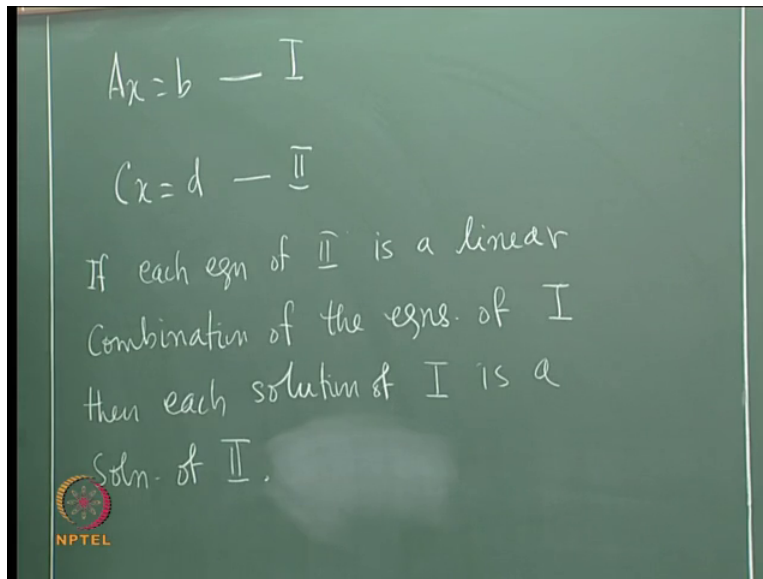 Ax=b — I
Cx=d — II
If each eqn of II is a linear
Combination of the eqns. of I
then each solution of I is a
Soln. of II.
NPTEL